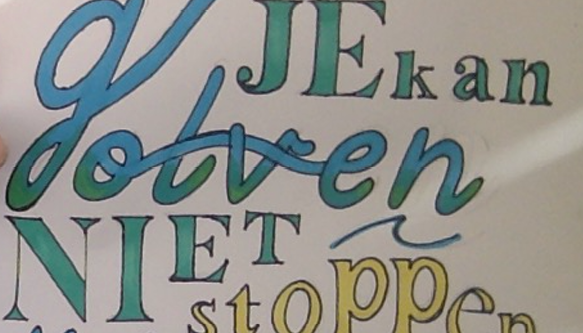 JE kan
golven
NIET
stoppen